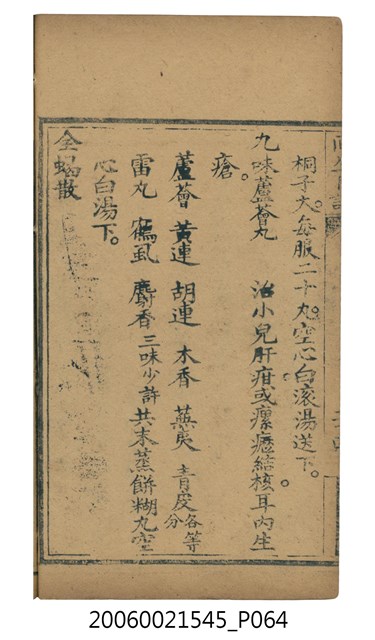 桐子大。每服二十丸。空心白滚湯送下。
九味蘆薈丸 治小兒肝疳或瘰癧結核。耳內生
瘡。
蘆薈 黃連 胡連 木香 蕪荑 青皮各等分
雷丸 鶴虱 麝香三味少許 共末蒸餅糊丸空
心白湯下。
全蝎散
20060021545_P064